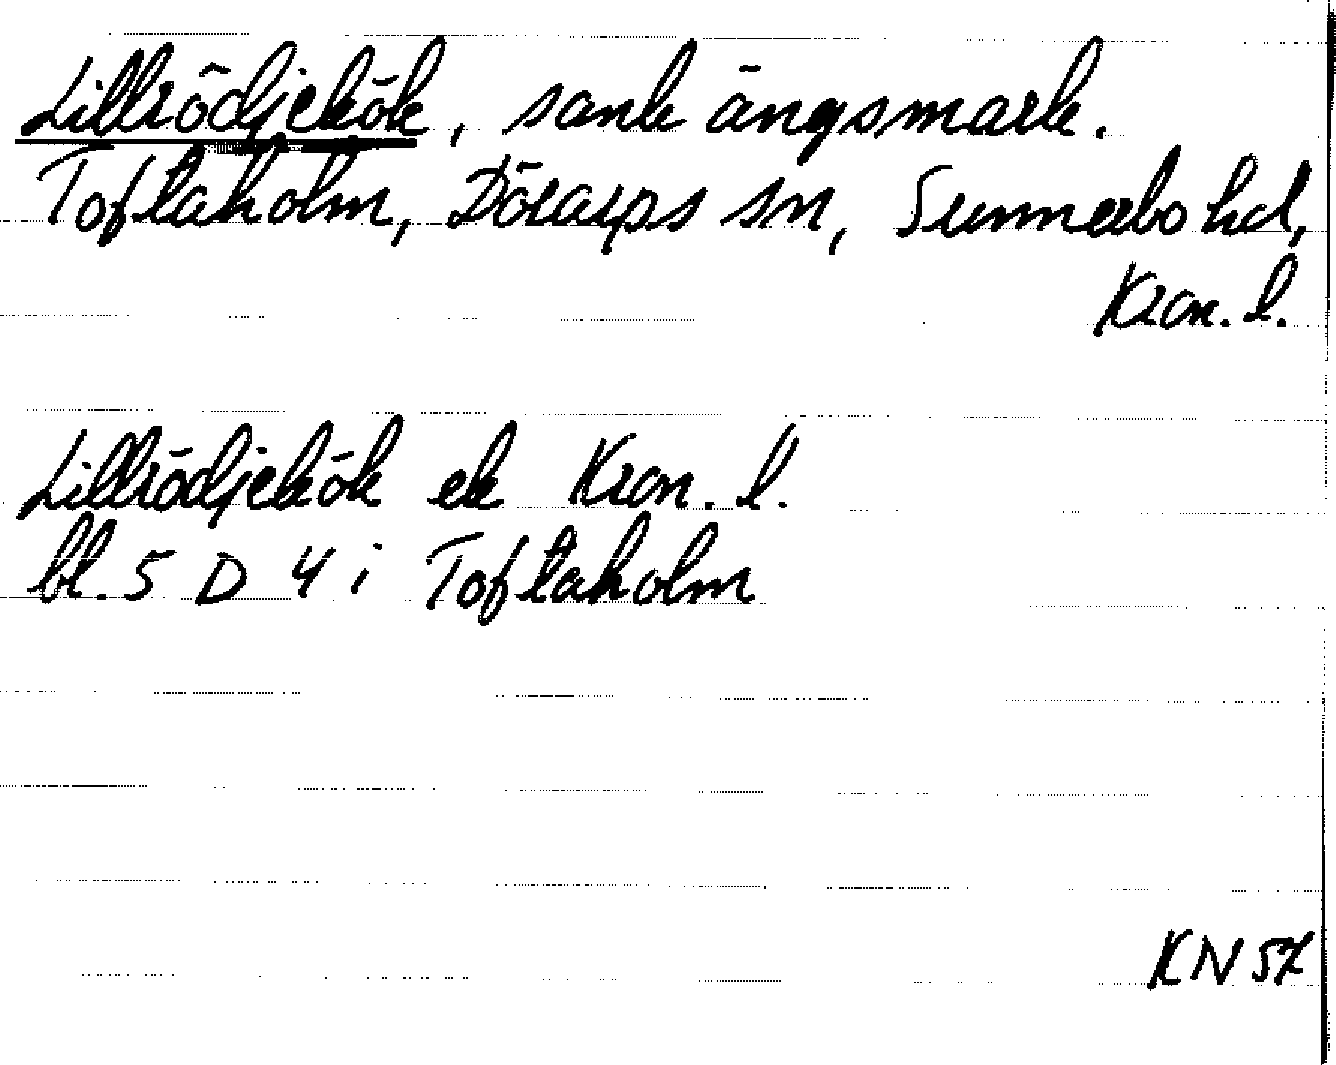 Lillrödjekök, sank ängsmark.
Toftaholm, Dörarps sn, Sunnerbo hd,
Kron. l.
Lillrödjekök ek Kron. l.
bl. 5 D 4 i Toftaholm
KN 57